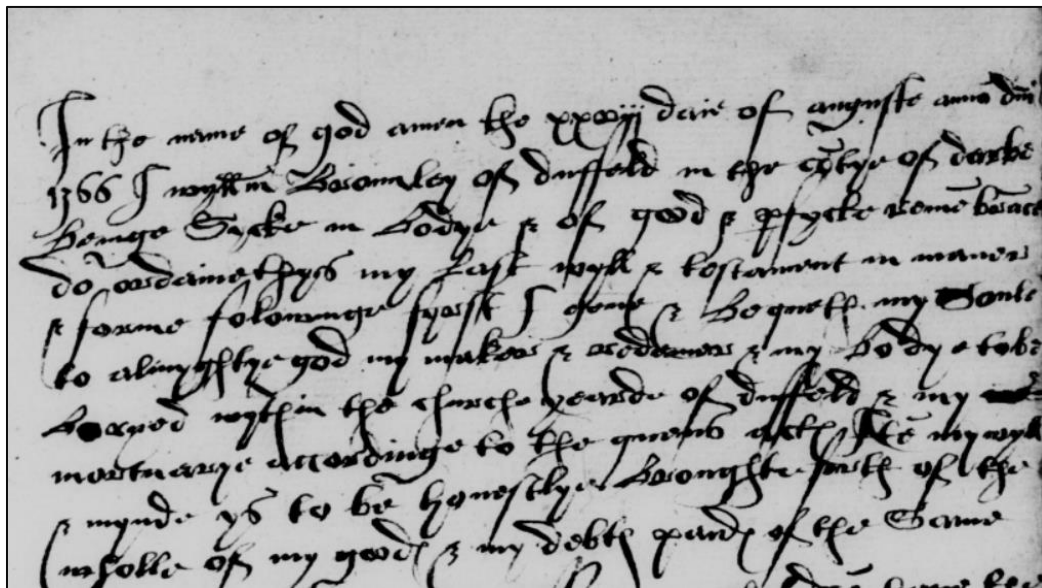 In the name of god amen the xxviij daie of auguste anno dm̄i
1566 I wyllm̄ Bromley of duffeld in the cōtye of darbe
beinge Sycke in bodye & of good & pfycte remēbrāce
do ordaine thys my last wyll & testament in maner
& forme folowinge fyrst I geve & bequeth my Soule
to almyghtye god my maker & redemer & my bodye to be
buryed wythin the churche yearde of duffeld & my
mortuarye accordinge to the quens acte Itē my wyll
& mynde ys to be honestlye broughte forth of the
wholle of my goods & my debts payd of the Same